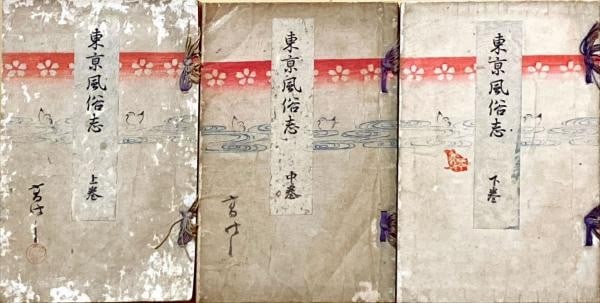 東京風俗志
上巻
東京風俗志
中巻
東京風俗志
下巻